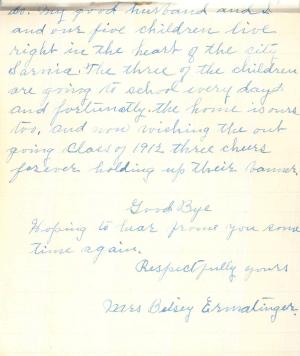 so. My good husband and I
and our five children live
right in the heart of the city
Sarnia. The three of the children
are going to school every day
and fortunatly. the home is ours
too, and now wishing the out
going class of 1912 three cheers
forever holding up their banner.
Good Bye
Hoping to hear frome you some
time again.
Respectfully yours
Mrs Betsey Ermatinger.